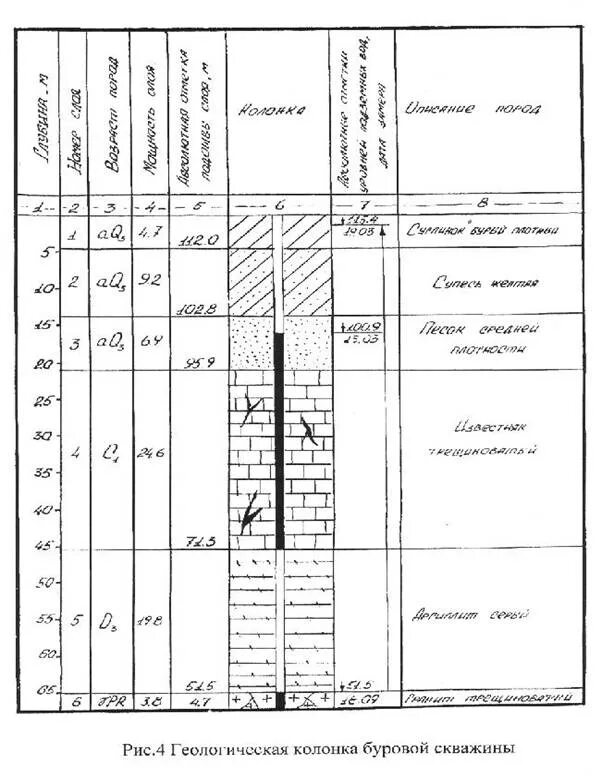 Глубина, м
Номер слоя
Возраст пород
Мощность слоя
Абсолютная отметка
подошвы слоя, м
Колонка
Абсолютные отметки
уровней подземных вод,
дата замера
Описание пород
1 2 3 4 5 6 7 8
1 aQ₃ 4.7 112.0
115.4
19.03
Суглинок бурый плотный
5
10
2 aQ₃ 9.2 102.8
Супесь желтая
15
20
3 aQ₃ 6.9 95.9
100.9
15.03
Песок средней
плотности
25
30
35
40
45
4 C₁ 24.6 71.3
Известняк
трещиноватый
50
55
60
65
5 D₃ 19.8 51.5
51.5
Аргиллит серый
6 PR 3.8 4.7
Гранит трещиноватый
Рис.4 Геологическая колонка буровой скважины